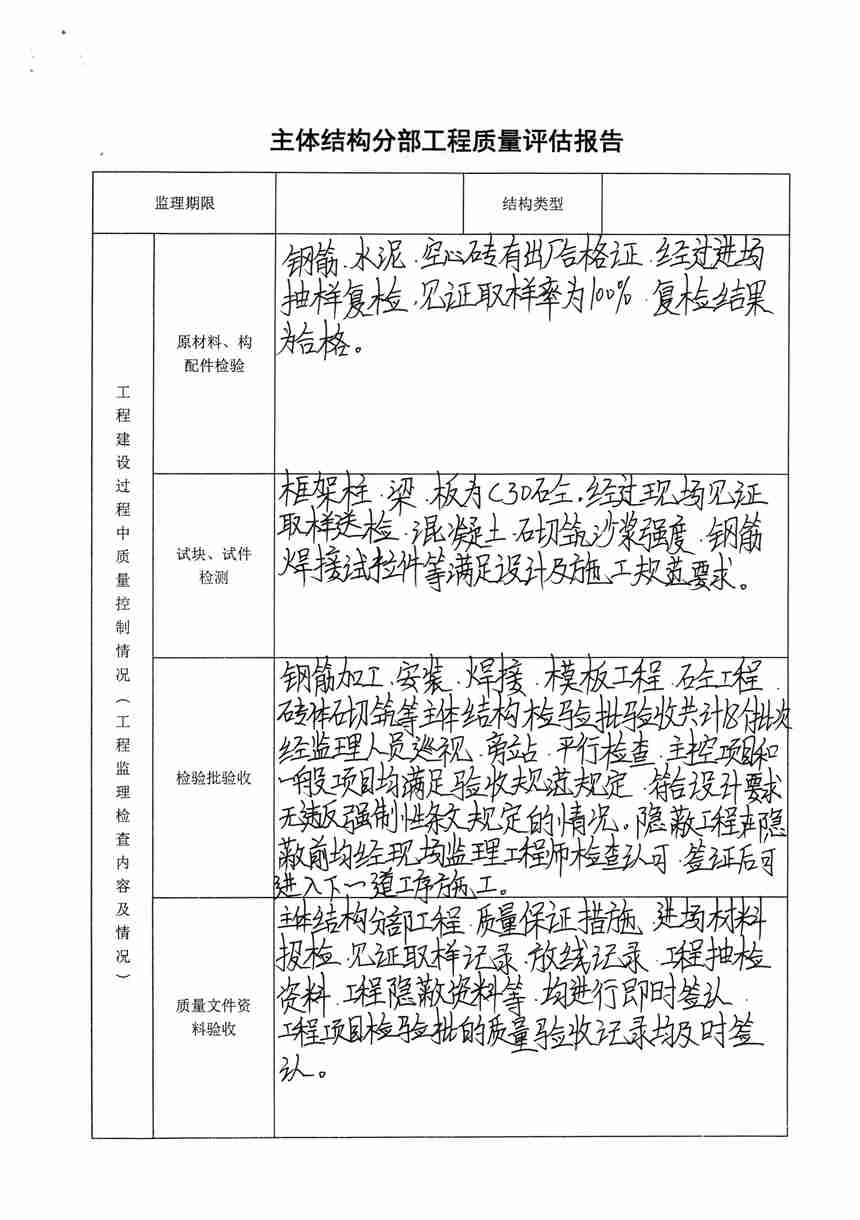 主体结构分部工程质量评估报告
监理期限
结构类型
工程建设过程中质量控制情况（工程监理检查内容及情况）
原材料、构
配件检验
钢筋、水泥、空心砖有出厂合格证、经过进场
抽样复检,见证取样率为100%、复检结果
为合格。
试块、试件
检测
框架柱、梁、板为C30砼,经过现场见证
取样送检、混凝土、砌筑沙浆强度、钢筋
焊接试拉件等满足设计及施工规范要求。
检验批验收
钢筋加工、安装、焊接、模板工程、砼工程、
砖体砌筑等主体结构检验批验收共计18个批次
经监理人员巡视、旁站、平行检查、主控项目和
一般项目均满足验收规范规定、符合设计要求
无违反强制性条文规定的情况。隐蔽工程在隐
蔽前均经现场监理工程师检查认可、签证后可
进入下一道工序施工。
质量文件资
料验收
主体结构分部工程、质量保证措施、进场材料
报检、见证取样记录、放线记录、工程抽检
资料、工程隐蔽资料等、均进行即时签认、
工程项目检验批的质量验收记录均及时签
认。